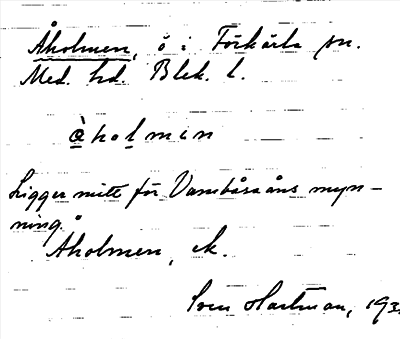 Åholmen, ö i Förkärla sn.
Med. hd. Blek. l.
àholmen
Ligger mitt för Vambåsaåns myn-
ning.
Åholmen, ek.
Sven Hartman, 193